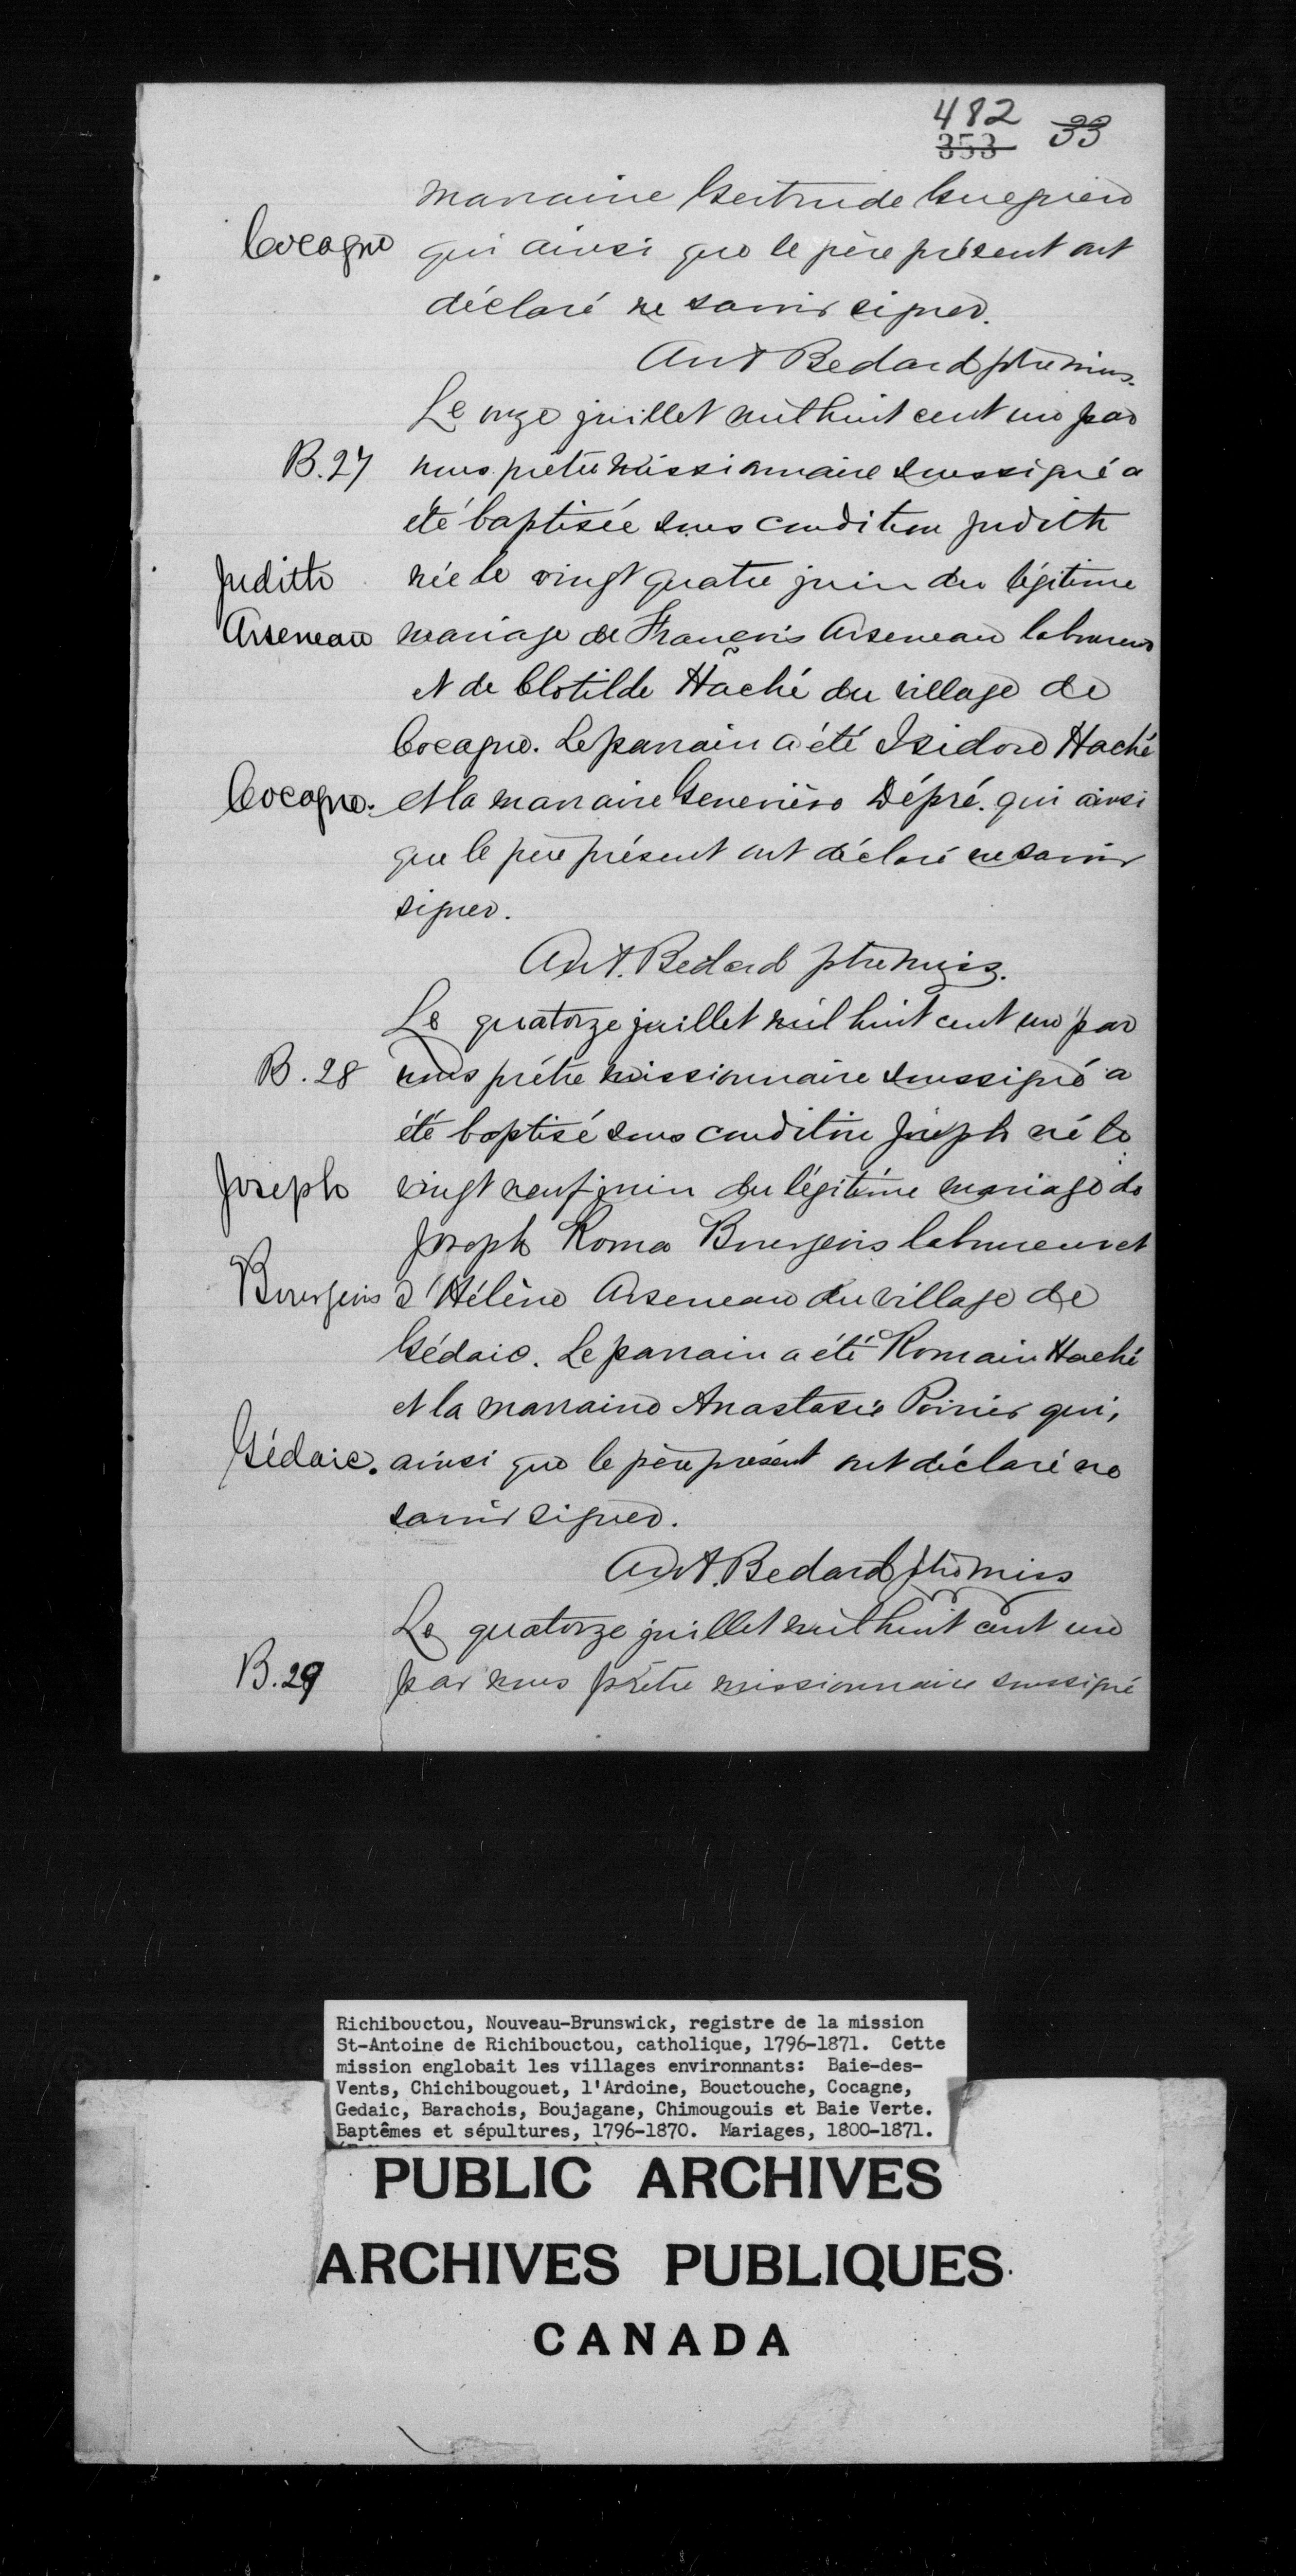 482
353 33
marraine Gertrude Gueguen
Cocagne qui ainsi que le père présent ont
déclaré ne savoir signer.
Ant Bedard ptre miss.
Le onze juillet mil huit cent un par
B.27 nous prêtre missionnaire soussigné a
été baptisée sous condition Judith
Judith née le vingt quatre juin du légitime
Arseneau mariage de François Arseneau laboureur
et de Clotilde Haché du village de
Cocagne. Le parrain a été Isidore Haché
Cocagne. et la marraine Geneviève Dépré. qui ainsi
que le père présent ont déclaré ne savoir
signer.
Ant. Bedard ptre miss.
Le quatorze juillet mil huit cent un par
B.28 nous prêtre missionnaire soussigné a
été baptisé sous condition Joseph né le
Joseph vingt neuf juin du légitime mariage de
Joseph Roma Bourgeois laboureur et
Bourgeois d'Hélène Arseneau du village de
Gédaic. Le parrain a été Romain Haché
et la marraine Anastasie Poirier qui,
Gédaic. ainsi que le père présent ont déclaré ne
savoir signer.
Ant. Bedard ptre miss
Le quatorze juillet mil huit cent un
B.29 par nous prêtre missionnaire soussigné
Richibouctou, Nouveau-Brunswick, registre de la mission
St-Antoine de Richibouctou, catholique, 1796-1871. Cette
mission englobait les villages environnants: Baie-des-
Vents, Chichibougouet, l'Ardoine, Bouctouche, Cocagne,
Gedaic, Barachois, Boujagane, Chimougouis et Baie Verte.
Baptêmes et sépultures, 1796-1870. Mariages, 1800-1871.
PUBLIC ARCHIVES
ARCHIVES PUBLIQUES
CANADA